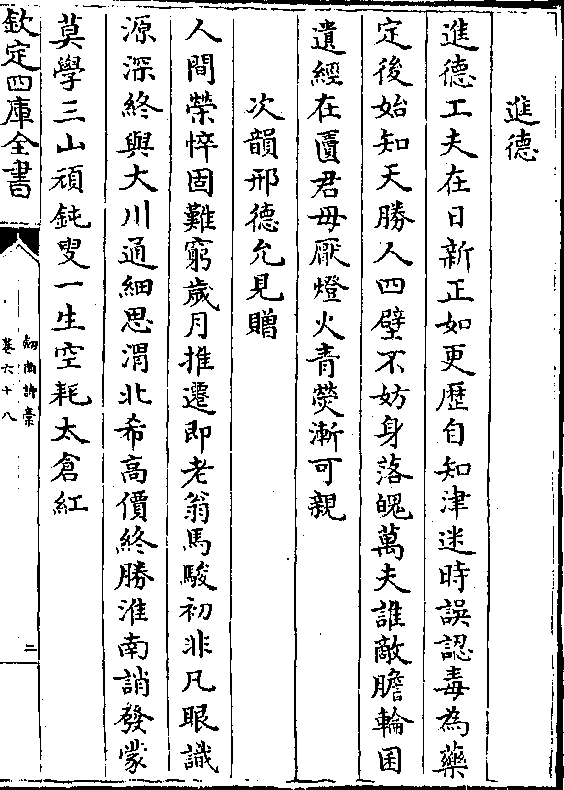 進德
進德工夫在日新正如更歴自知津迷時誤認毒為藥
定後始知天勝人四壁不妨身落魄萬夫誰敵膽輪囷
遺經在匵君毋厭燈火青熒漸可親
次韻邢德允見贈
人間榮悴固難窮歲月推遷即老翁馬駿初非凡眼識
源深終與大川通細思渭北希高價終勝淮南誚發蒙
莫學三山頑鈍叟一生空耗太倉紅
欽定四庫全書
劍南詩稾
卷六十八
二